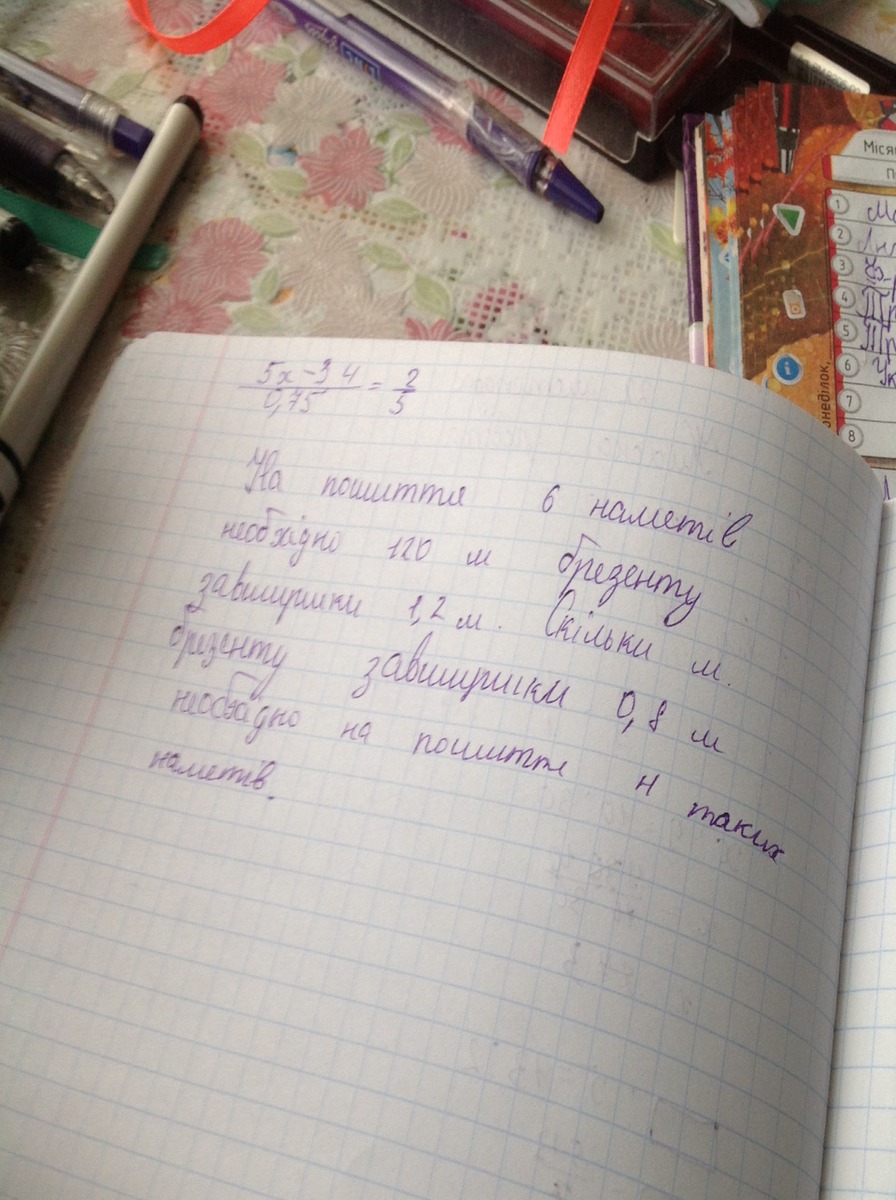 5x - 3 4 / 0,75 = 2/5
На пошиття 6 наметів
необхідно 120 м брезенту
завширшки 1,2 м. Скільки м.
брезенту завширшки 0,8 м
необхідно на пошиття н таких
наметів.
Міся
п
1
2
3
4
5
6 Ук
7
8
онеділок,